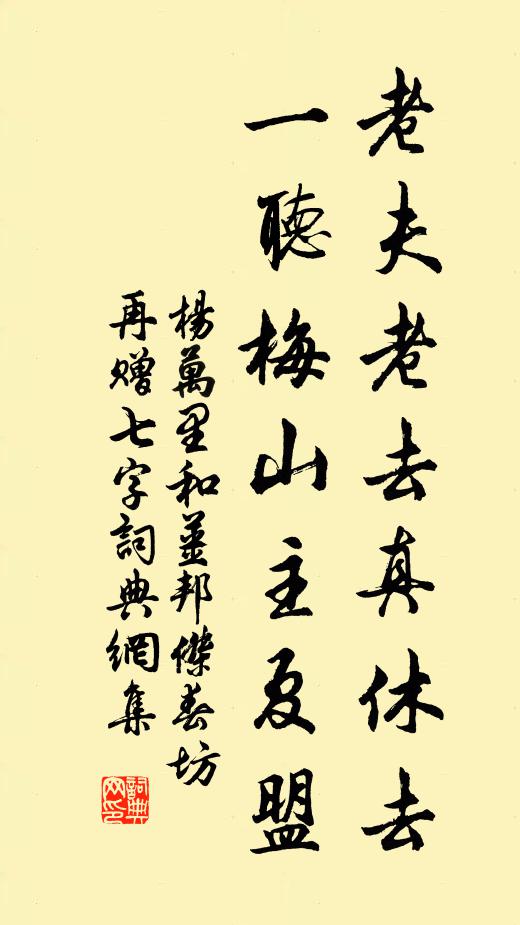 老夫老去真休去
一聽梅山主夏盟
楊萬里和姜邦傑春坊
再贈七字詞典網集
詞典
网印